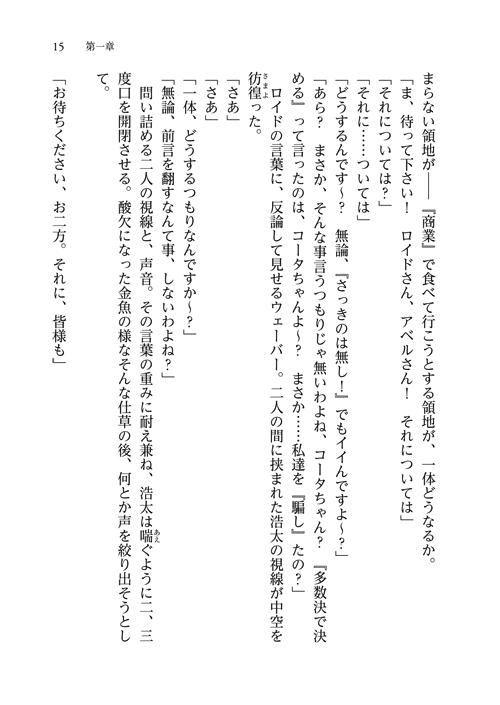 15　第一章
まらない領地が――『商業』で食べて行こうとする領地が、一体どうなるか。
「ま、待って下さい！　ロイドさん、アベルさん！　それについては」
「それについては？」
「それに……ついては」
「どうするんです～？　無論、『さっきのは無し！』でもイイんですよ～？」
「あら？　まさか、そんな事言うつもりじゃ無いわよね、コータちゃん？　『多数決で決
める』って言ったのは、コータちゃんよ～？　まさか……私達を『騙し』たの？」
ロイドの言葉に、反論して見せるウェーバー。二人の間に挟まれた浩太の視線が中空を
彷徨さまよった。
「さあ」
「さあ」
「一体、どうするつもりなんですか～？」
「無論、前言を翻すなんて事、しないわよね？」
問い詰める二人の視線と、声音。その言葉の重みに耐え兼ね、浩太は喘あえぐように二、三
度口を開閉させる。酸欠になった金魚の様なそんな仕草の後、何とか声を絞り出そうとし
て。
「お待ちください、お二方。それに、皆様も」